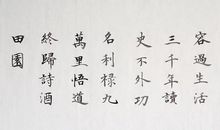 容過生活
三千年讀
史不外功
名利祿九
萬里悟道
終歸詩酒
田園